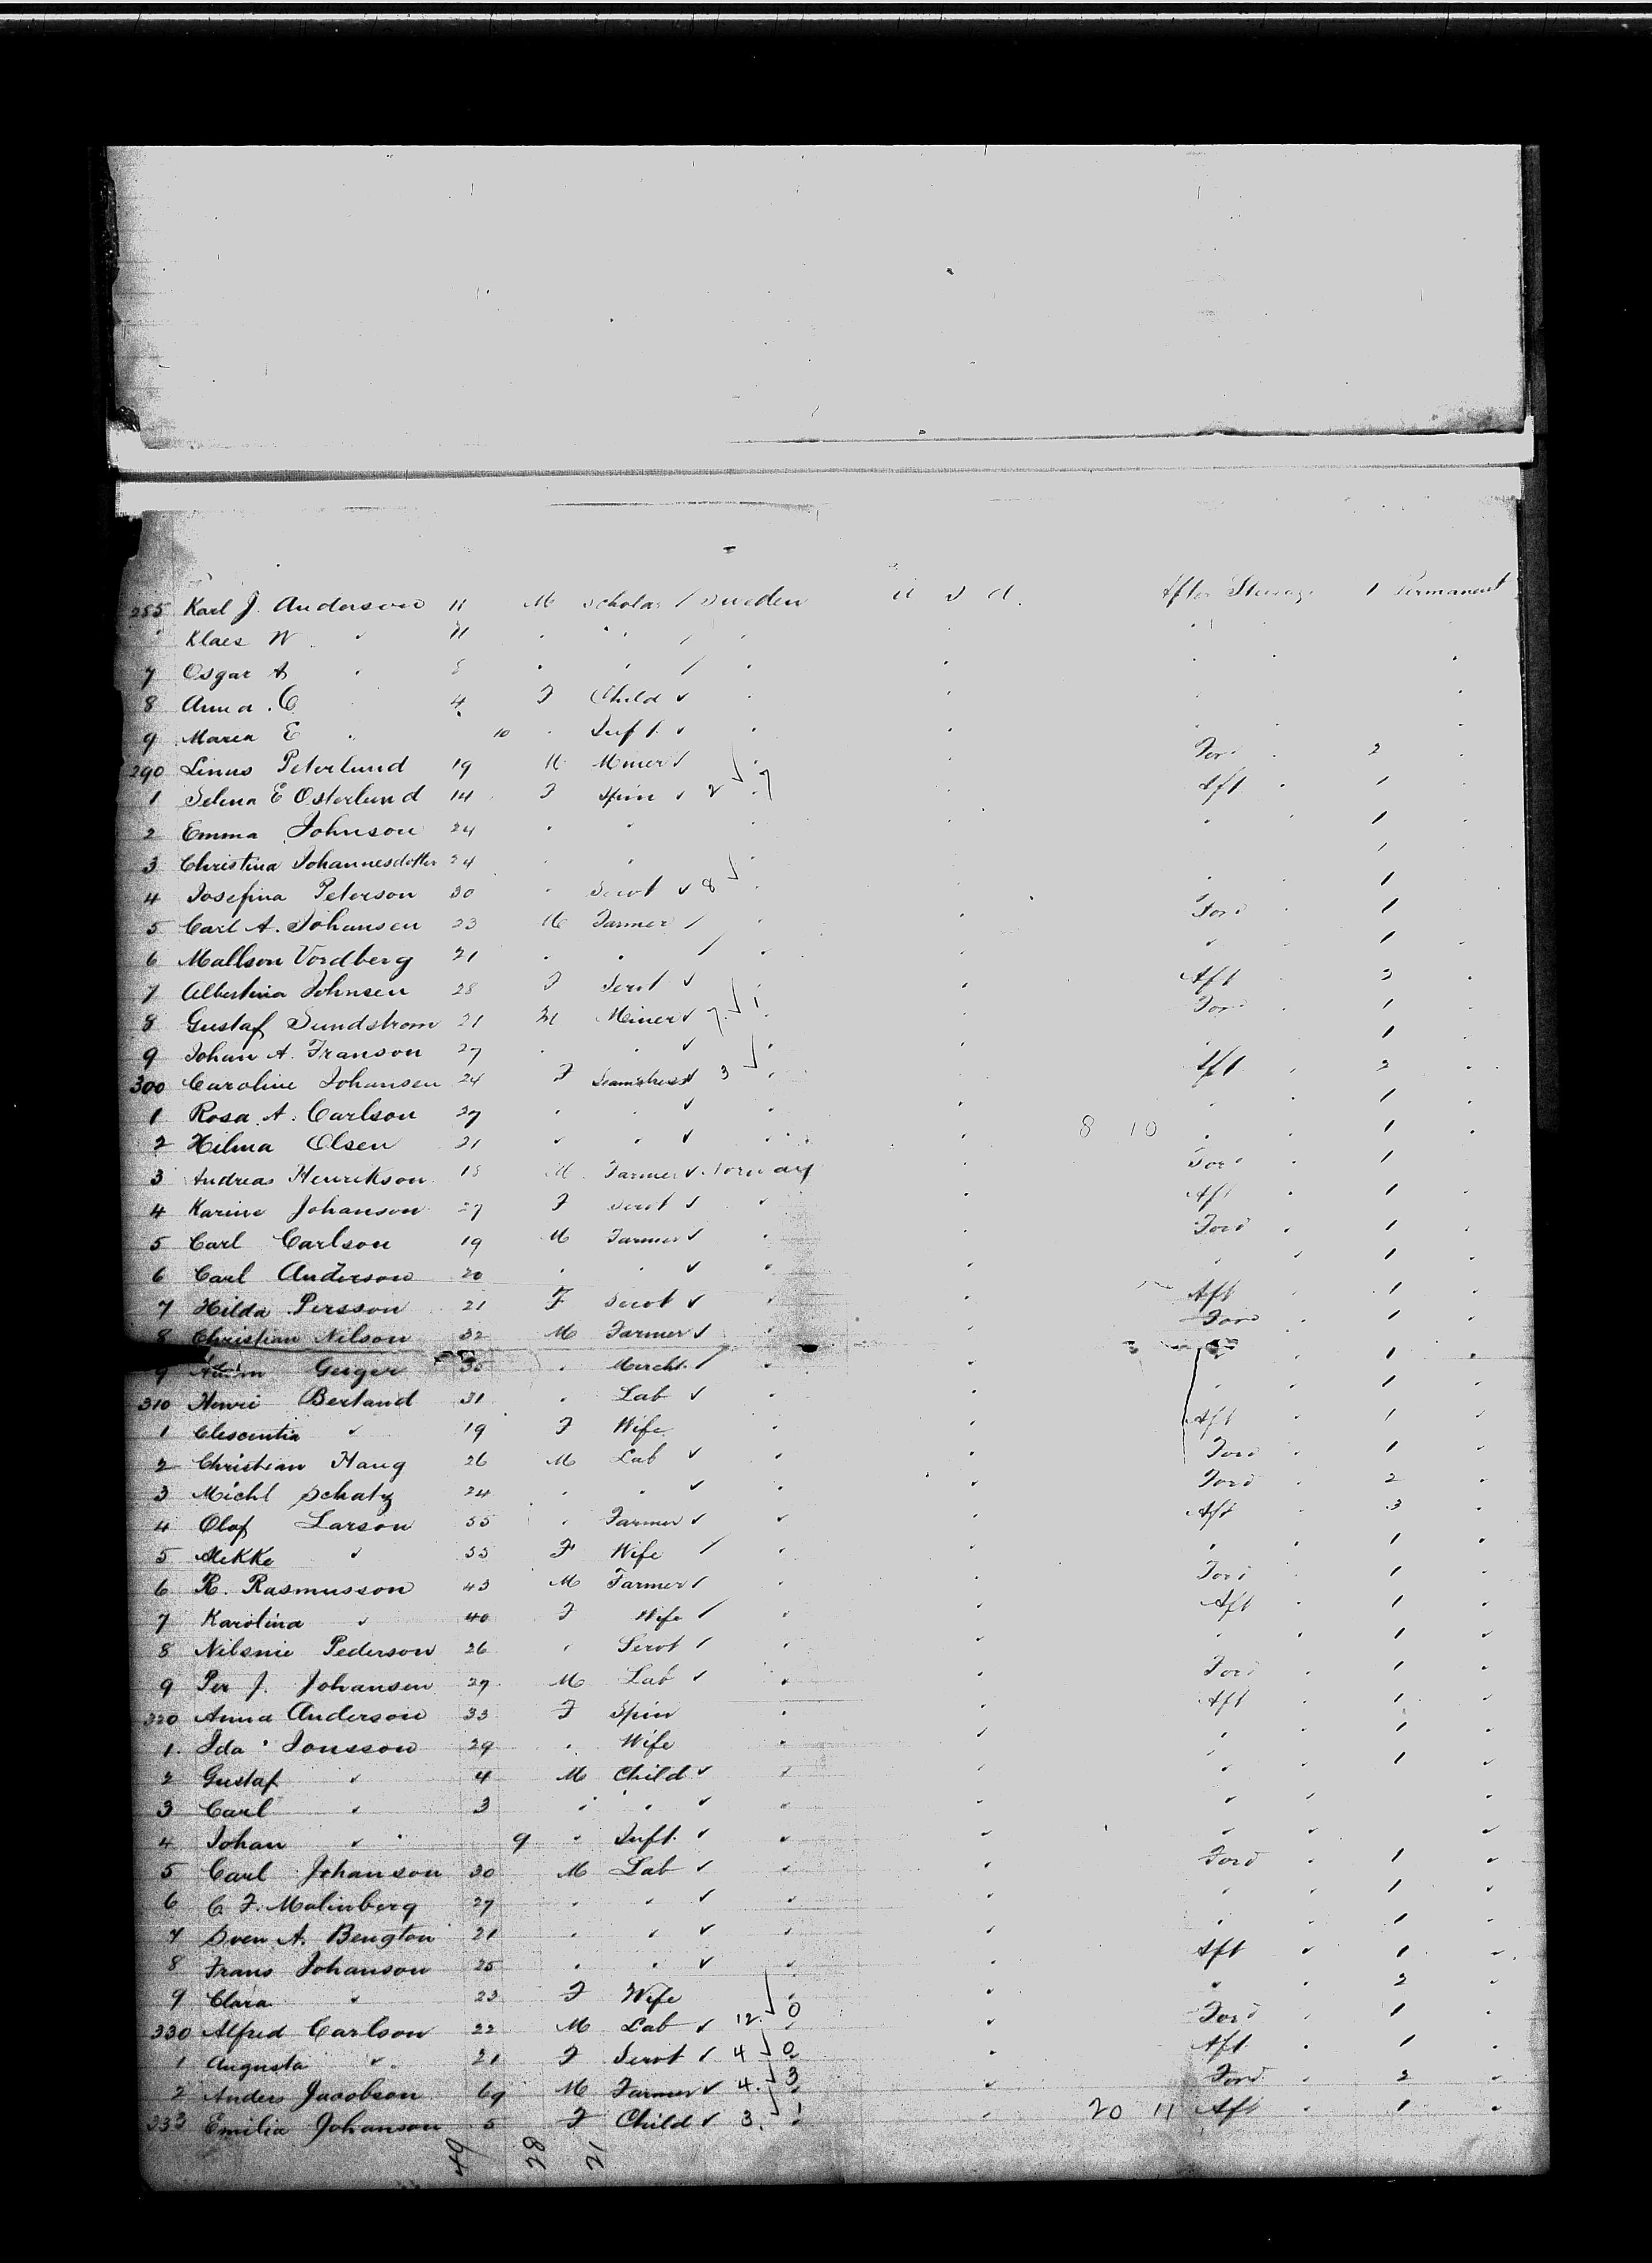 285 Karl J. Anderson 11 M Scholar / Sweden U S A. After Steerage 1 Permanent
Klaes W " 11 " " / "
7 Osgar A " " " / "
8 Anna C " 4 F Child ✓ "
9 Maria E " 10 " Inft. ✓ "
290 Linus Peterlund 19 M Miner ✓ " Ford 2 "
1 Selma E Osterlund 14 F Spin ✓ 2 7 Aft " 1 "
2 Emma Johnson 24 " " " " 1 "
3 Christina Johannesdotter 24 " " " 1 "
4 Josefina Peterson 30 " Servt ✓ 8 " " 1 "
5 Carl A. Johansen 23 M Farmer / " Ford " 1 "
6 Mallson Vordberg 21 " " / " " 1 "
7 Albertina Johnsen 28 F Servt ✓ " Aft 2 "
8 Gustaf Sundstrom 21 M Miner ✓ 7 1 " Ford " 1 "
9 Johan A. Franson 27 " " ✓ " " 1 "
300 Caroline Johansen 24 F Seamstress ✓ 3 " Aft " 2 "
1 Rosa A. Carlson 27 " " ✓ " " " 1 "
2 Hilma Olsen 21 " " ✓ " " 8 10 " " 1 "
3 Andreas Henrikson 18 M Farmer ✓ Norway " Ford " 1 "
4 Karine Johanson 27 F Servt ✓ " " Aft " 1 "
5 Carl Carlson 19 M Farmer ✓ " " Ford " 1 "
6 Carl Anderson 20 " " ✓ " " " " 1 "
7 Hilda Persson 21 F Servt ✓ " " Aft " 1 "
8 Christian Nilson 32 M Farmer ✓ " " Ford " 1 "
9 Geiger 35 " Mercht. / " " " 1 "
310 Henri Bertand 31 " Lab ✓ " " " " 1 "
1 Clescentia " 19 F Wife " " Aft " 1 "
2 Christian Haug 26 M Lab ✓ " " Ford " 1 "
3 Michl Schatz 24 " " ✓ " " Ford " 2 "
4 Olof Larson 55 " Farmer ✓ " " Aft " 3 "
5 Mekke " 55 F Wife / " " " " 1 "
6 R. Rasmusson 43 M Farmer / " " Ford " 1 "
7 Karolina " 40 F Wife / " " Aft " 1 "
8 Nilsnie Pederson 26 " Servt / " " " " 1 "
9 Per J. Johansen 27 M Lab ✓ " " Ford " 1 "
320 Anna Anderson 33 F Spin " " Aft " 1 "
1 Ida Jonsson 29 " Wife " " " " 1 "
2 Gustaf " 4 M Child ✓ " " " " 1 "
3 Carl " 3 " " ✓ " " " " "
4 Johan " 9 " Inft. ✓ " " " " "
5 Carl Johanson 30 M Lab ✓ " " Ford " 1 "
6 C. F. Malinberg 27 " " ✓ " " " " 1 "
7 Sven A. Bengton 21 " " ✓ " " " " 1 "
8 Frans Johanson 25 " " ✓ " " Aft " 1 "
9 Clara " 23 F Wife " " " " 2 "
330 Alfred Carlson 22 M Lab ✓ 12 0 " " Ford " 1 "
1 Augusta " 21 F Servt ✓ 4 0 " " Aft " 1 "
2 Anders Jacobson 69 M Farmer ✓ 4 3 " " Ford " 2 "
333 Emilia Johanson 5 F Child ✓ 3 1 " " 20 11 Aft " 1 "
49 28 21